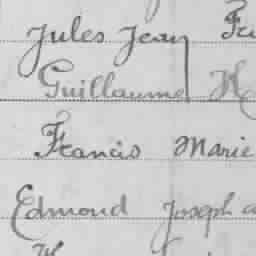 Jules Jean
Guillaume
Francis Marie
Edmond Joseph